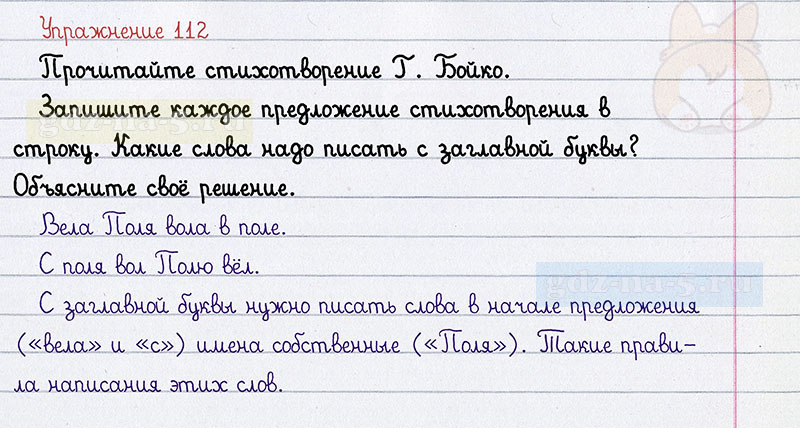 Упражнение 112
Прочитайте стихотворение Г. Бойко.
Запишите каждое предложение стихотворения в
строку. Какие слова надо писать с заглавной буквы?
Объясните своё решение.
Вела Поля вола в поле.
С поля вол Полю вёл.
С заглавной буквы нужно писать слова в начале предложения
(«вела» и «с») имена собственные («Поля»). Такие прави-
ла написания этих слов.
gdz-na-5.ru
gdz-na-5.ru